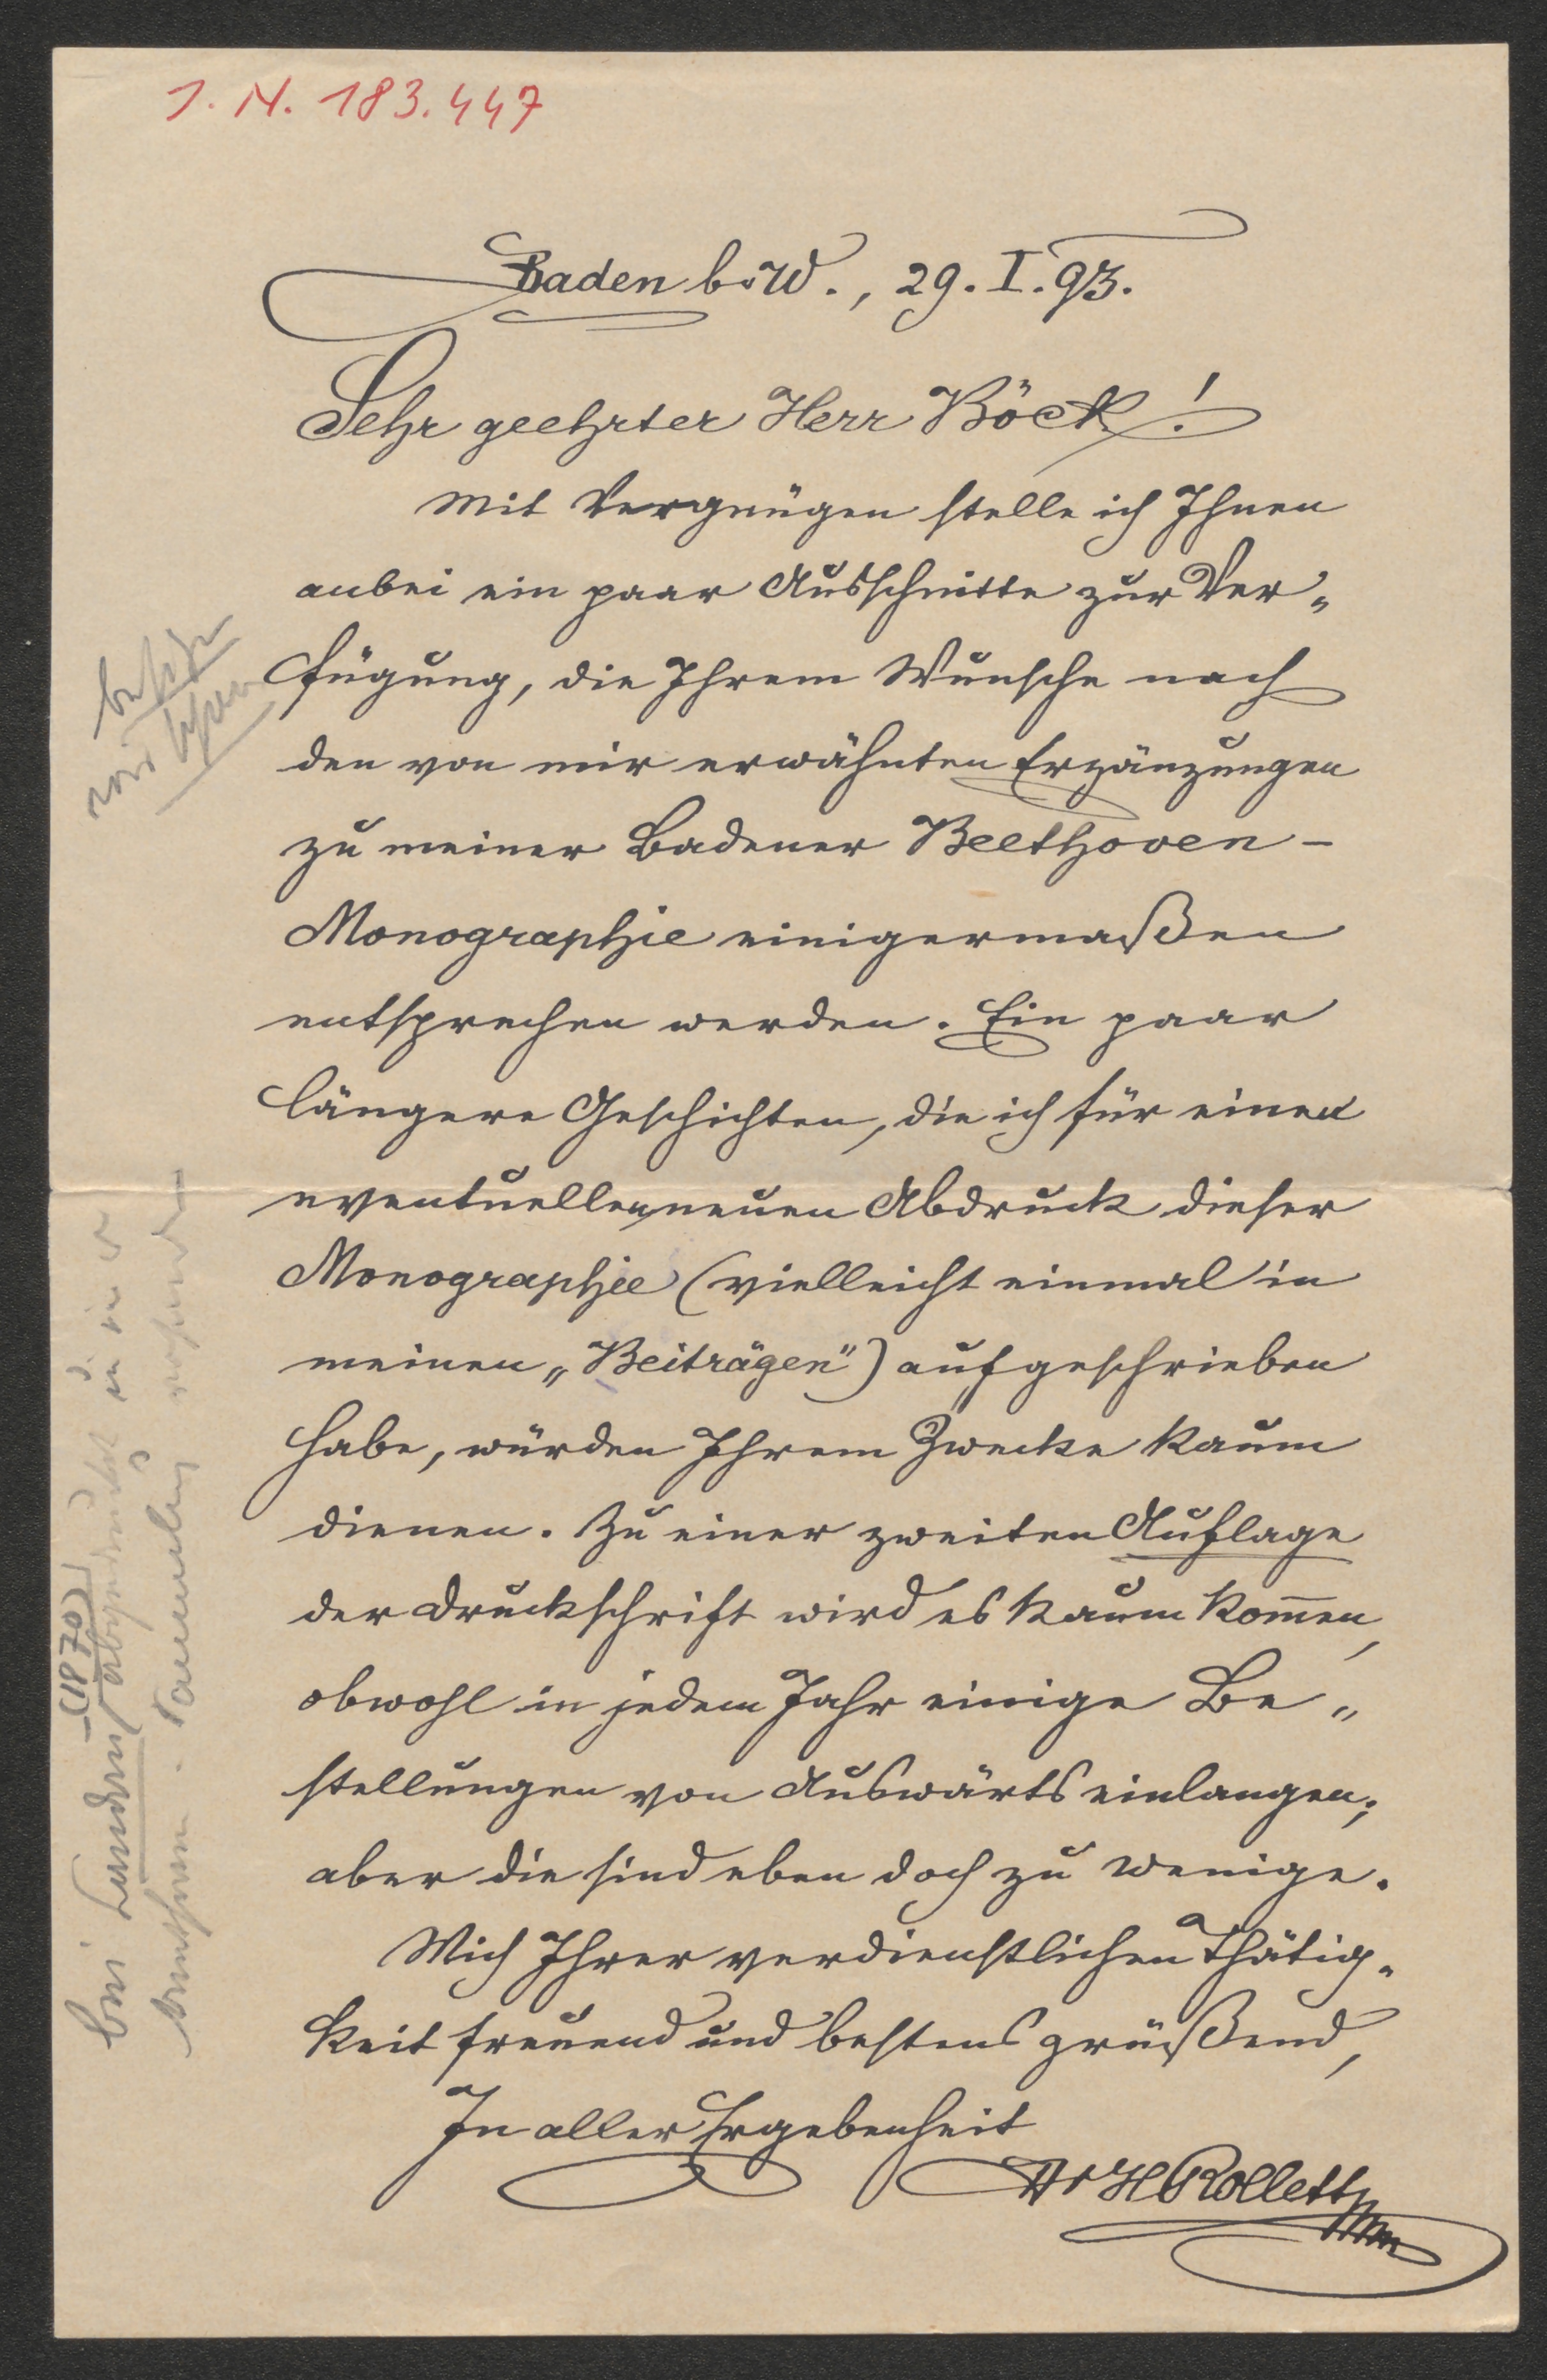 I. N. 183.447
Baden b. W., 29. I. 93.
Sehr geehrter Herr Böck!
Mit Vergnügen stelle ich Ihnen
anbei ein paar Ausschnitte zur Ver„
fügung, die Ihrem Wunsche nach
den von mir erwähnten Ergänzungen
zu meiner Badener Beethoven-
Monographie einigermaßen
entsprechen werden. Ein paar
längere Geschichten, die ich für einen
eventuellen neuen Abdruck dieser
Monographie (vielleicht einmal in
meinen „Beiträgen") aufgeschrieben
habe, würden Ihrem Zwecke kaum
dienen. Zu einer zweiten Auflage
der Druckschrift wird es kaum kom̄en,
obwohl in jedem Jahr einige Be„
stellungen von Auswärts einlangen;
aber die sind eben doch zu wenige.
Mich Ihrer verdienstlichen Thätig„
keit freuend und bestens grüßend,
In aller Ergebenheit
Dr HRollett
(1870)